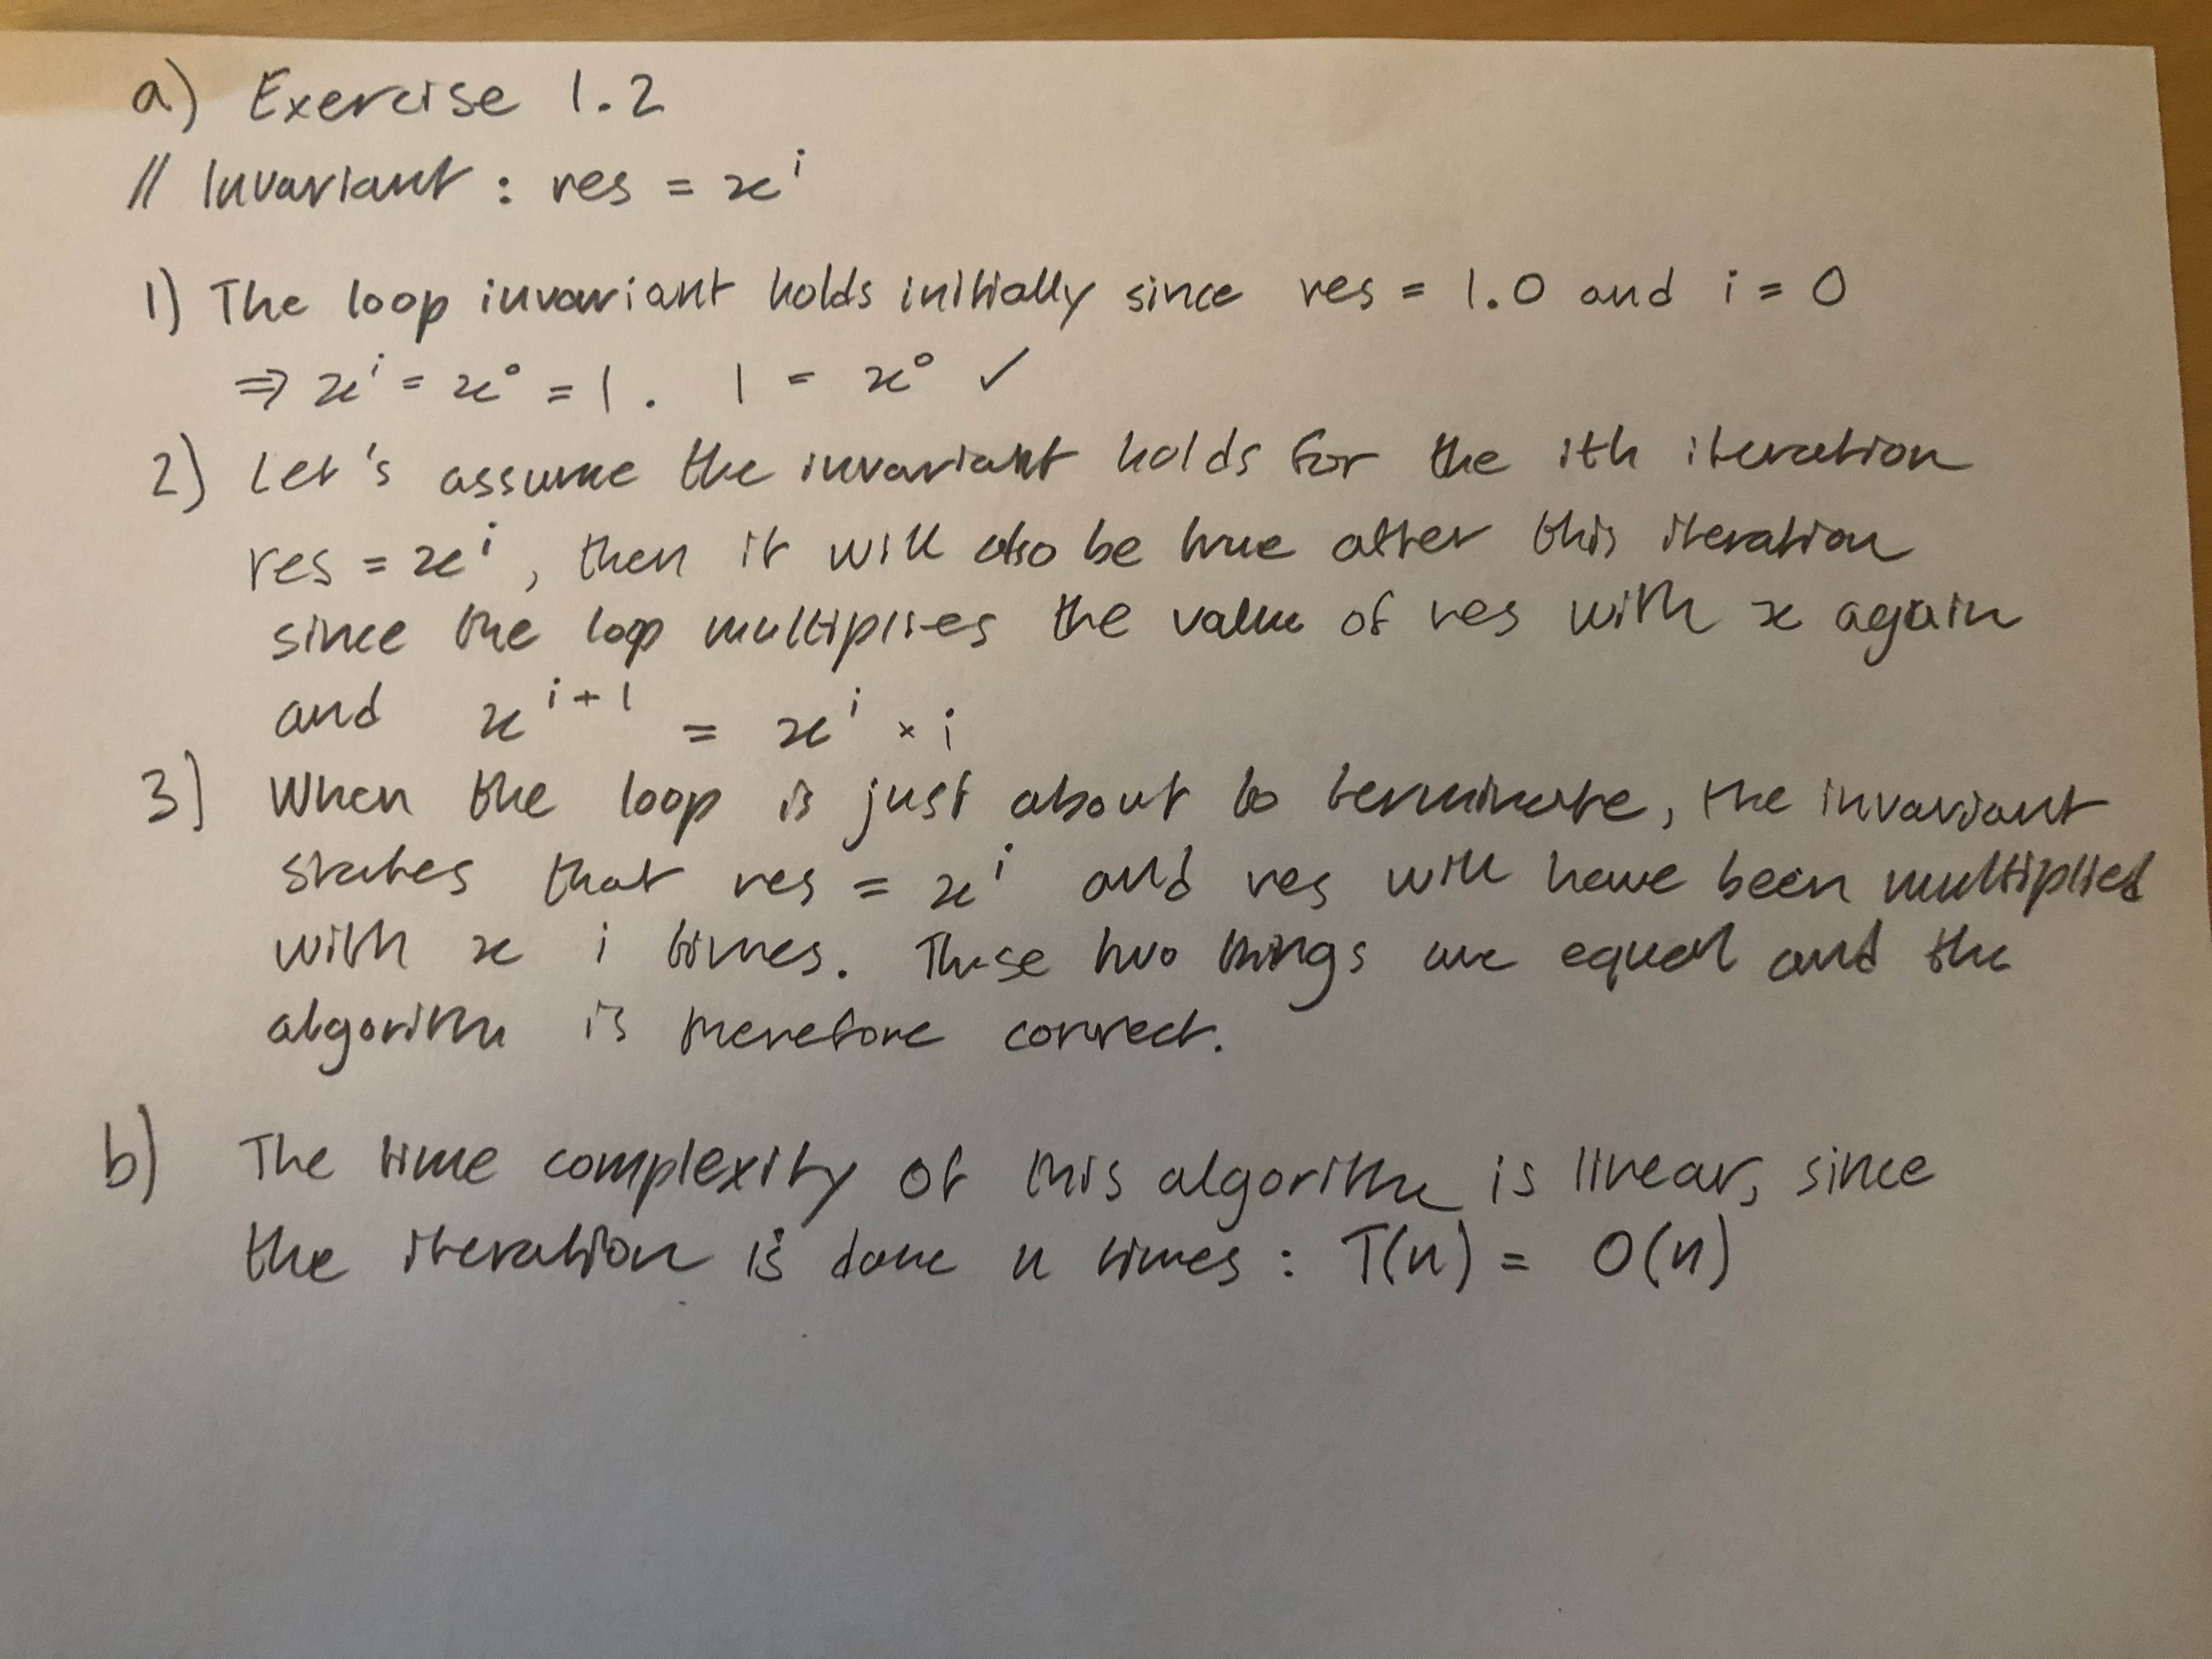 a) Exercise 1.2
// Invariant : res = x^i
1) The loop invariant holds initially since res = 1.0 and i = 0
⇒ x^i = x^0 = 1. 1 = x^0 ✓
2) Let's assume the invariant holds for the ith iteration
res = x^i, then it will also be true after this iteration
since the loop multiplies the value of res with x again
and x^{i+1} = x^i × i
3) When the loop is just about to terminate, the invariant
states that res = x^i and res will have been multiplied
with x i times. These two things are equal and the
algorithm is therefore correct.
b) The time complexity of this algorithm is linear, since
the iteration is done n times : T(n) = O(n)